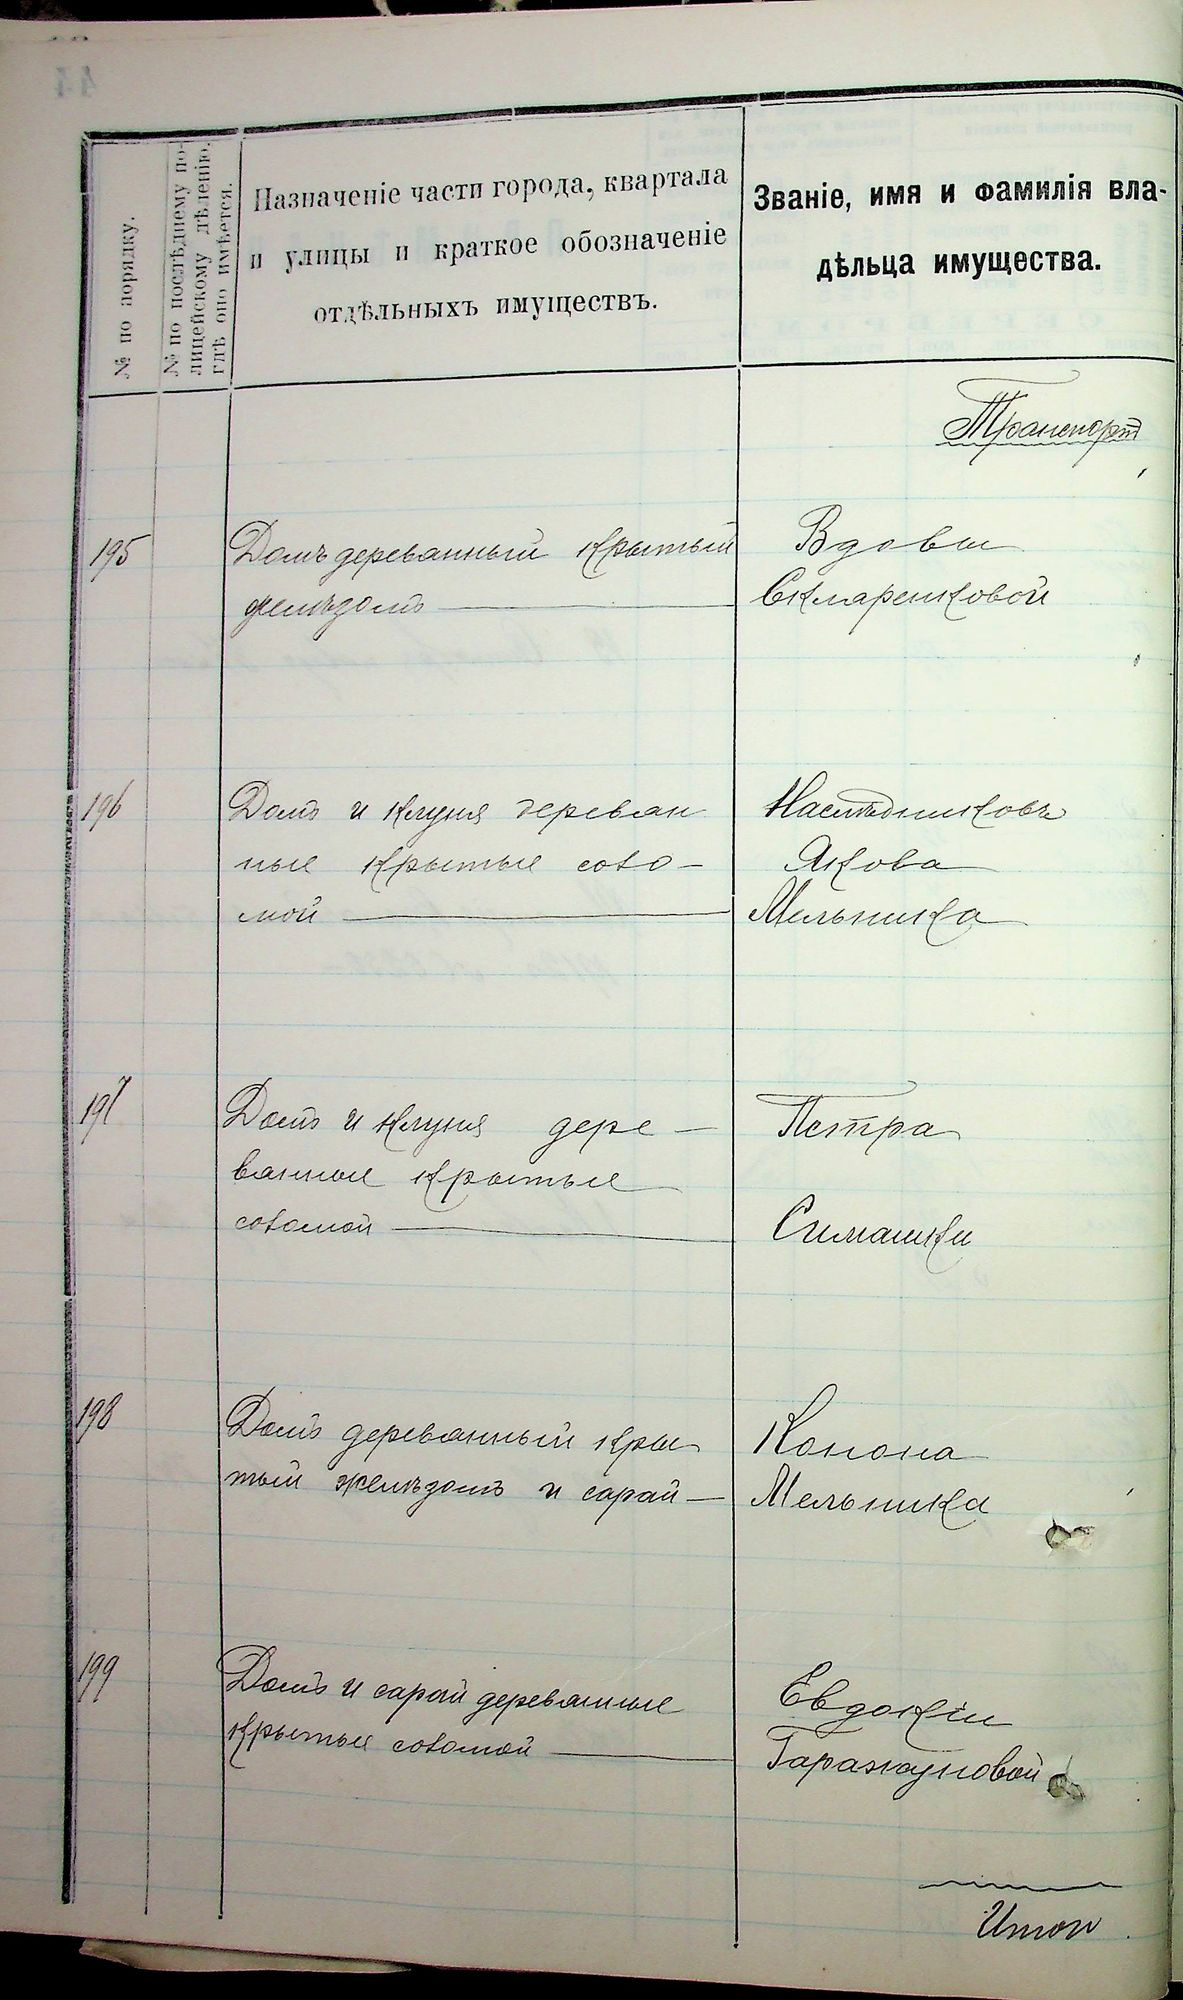 № по порядку.
№ по послѣднему по-
лицейскому дѣленію,
гдѣ оно имѣется.
Назначеніе части города, квартала
и улицы и краткое обозначеніе
отдѣльныхъ имуществъ.
Званіе, имя и фамилія вла-
дѣльца имущества.
Транспортъ
195
Домъ деревянный крытый
желѣзомъ
Вдовы
Скляренковой
196
Домъ и клуня деревян
ные крытые соло-
мой
Наслѣдниковъ
Якова
Мельника
197
Домъ и клуня дере-
вянные крытые
соломой
Петра
Симашки
198
Домъ деревянный кры
тый желѣзомъ и сарай
Конона
Мельника
199
Домъ и сарай деревянные
крытые соломой
Евдокіи
Итого